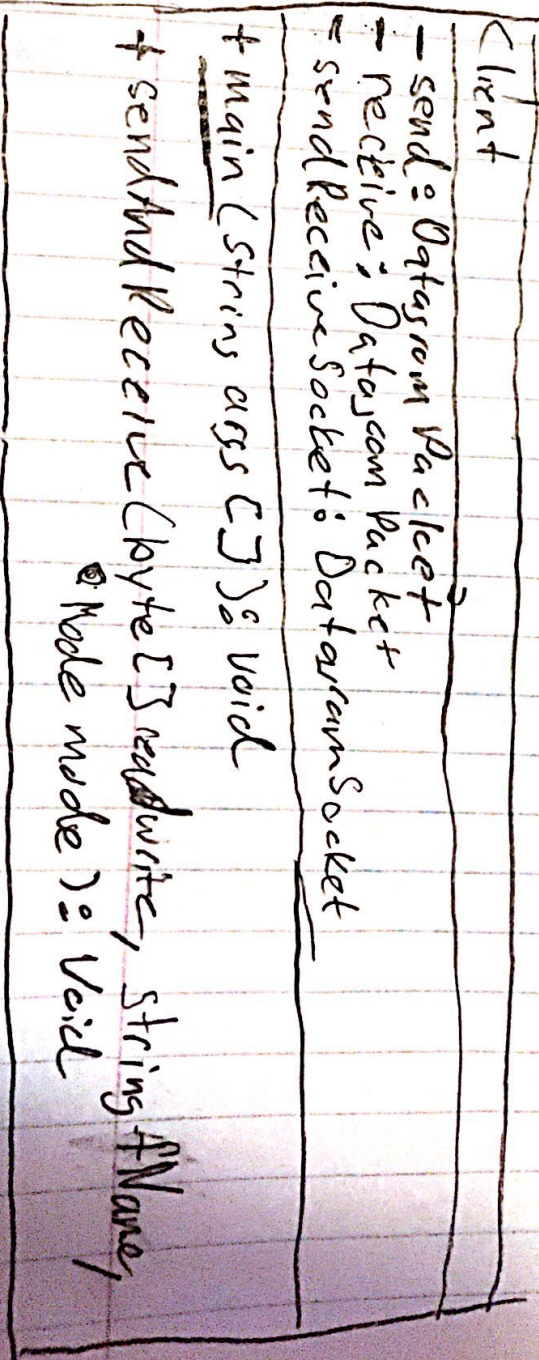 Client
- send: DatagramPacket
- receive: DatagramPacket
- sendReceiveSocket: DatagramSocket
+ main (String args []): void
+ sendAndReceive (byte[] readwrite, String fName,
Mode mode): Void